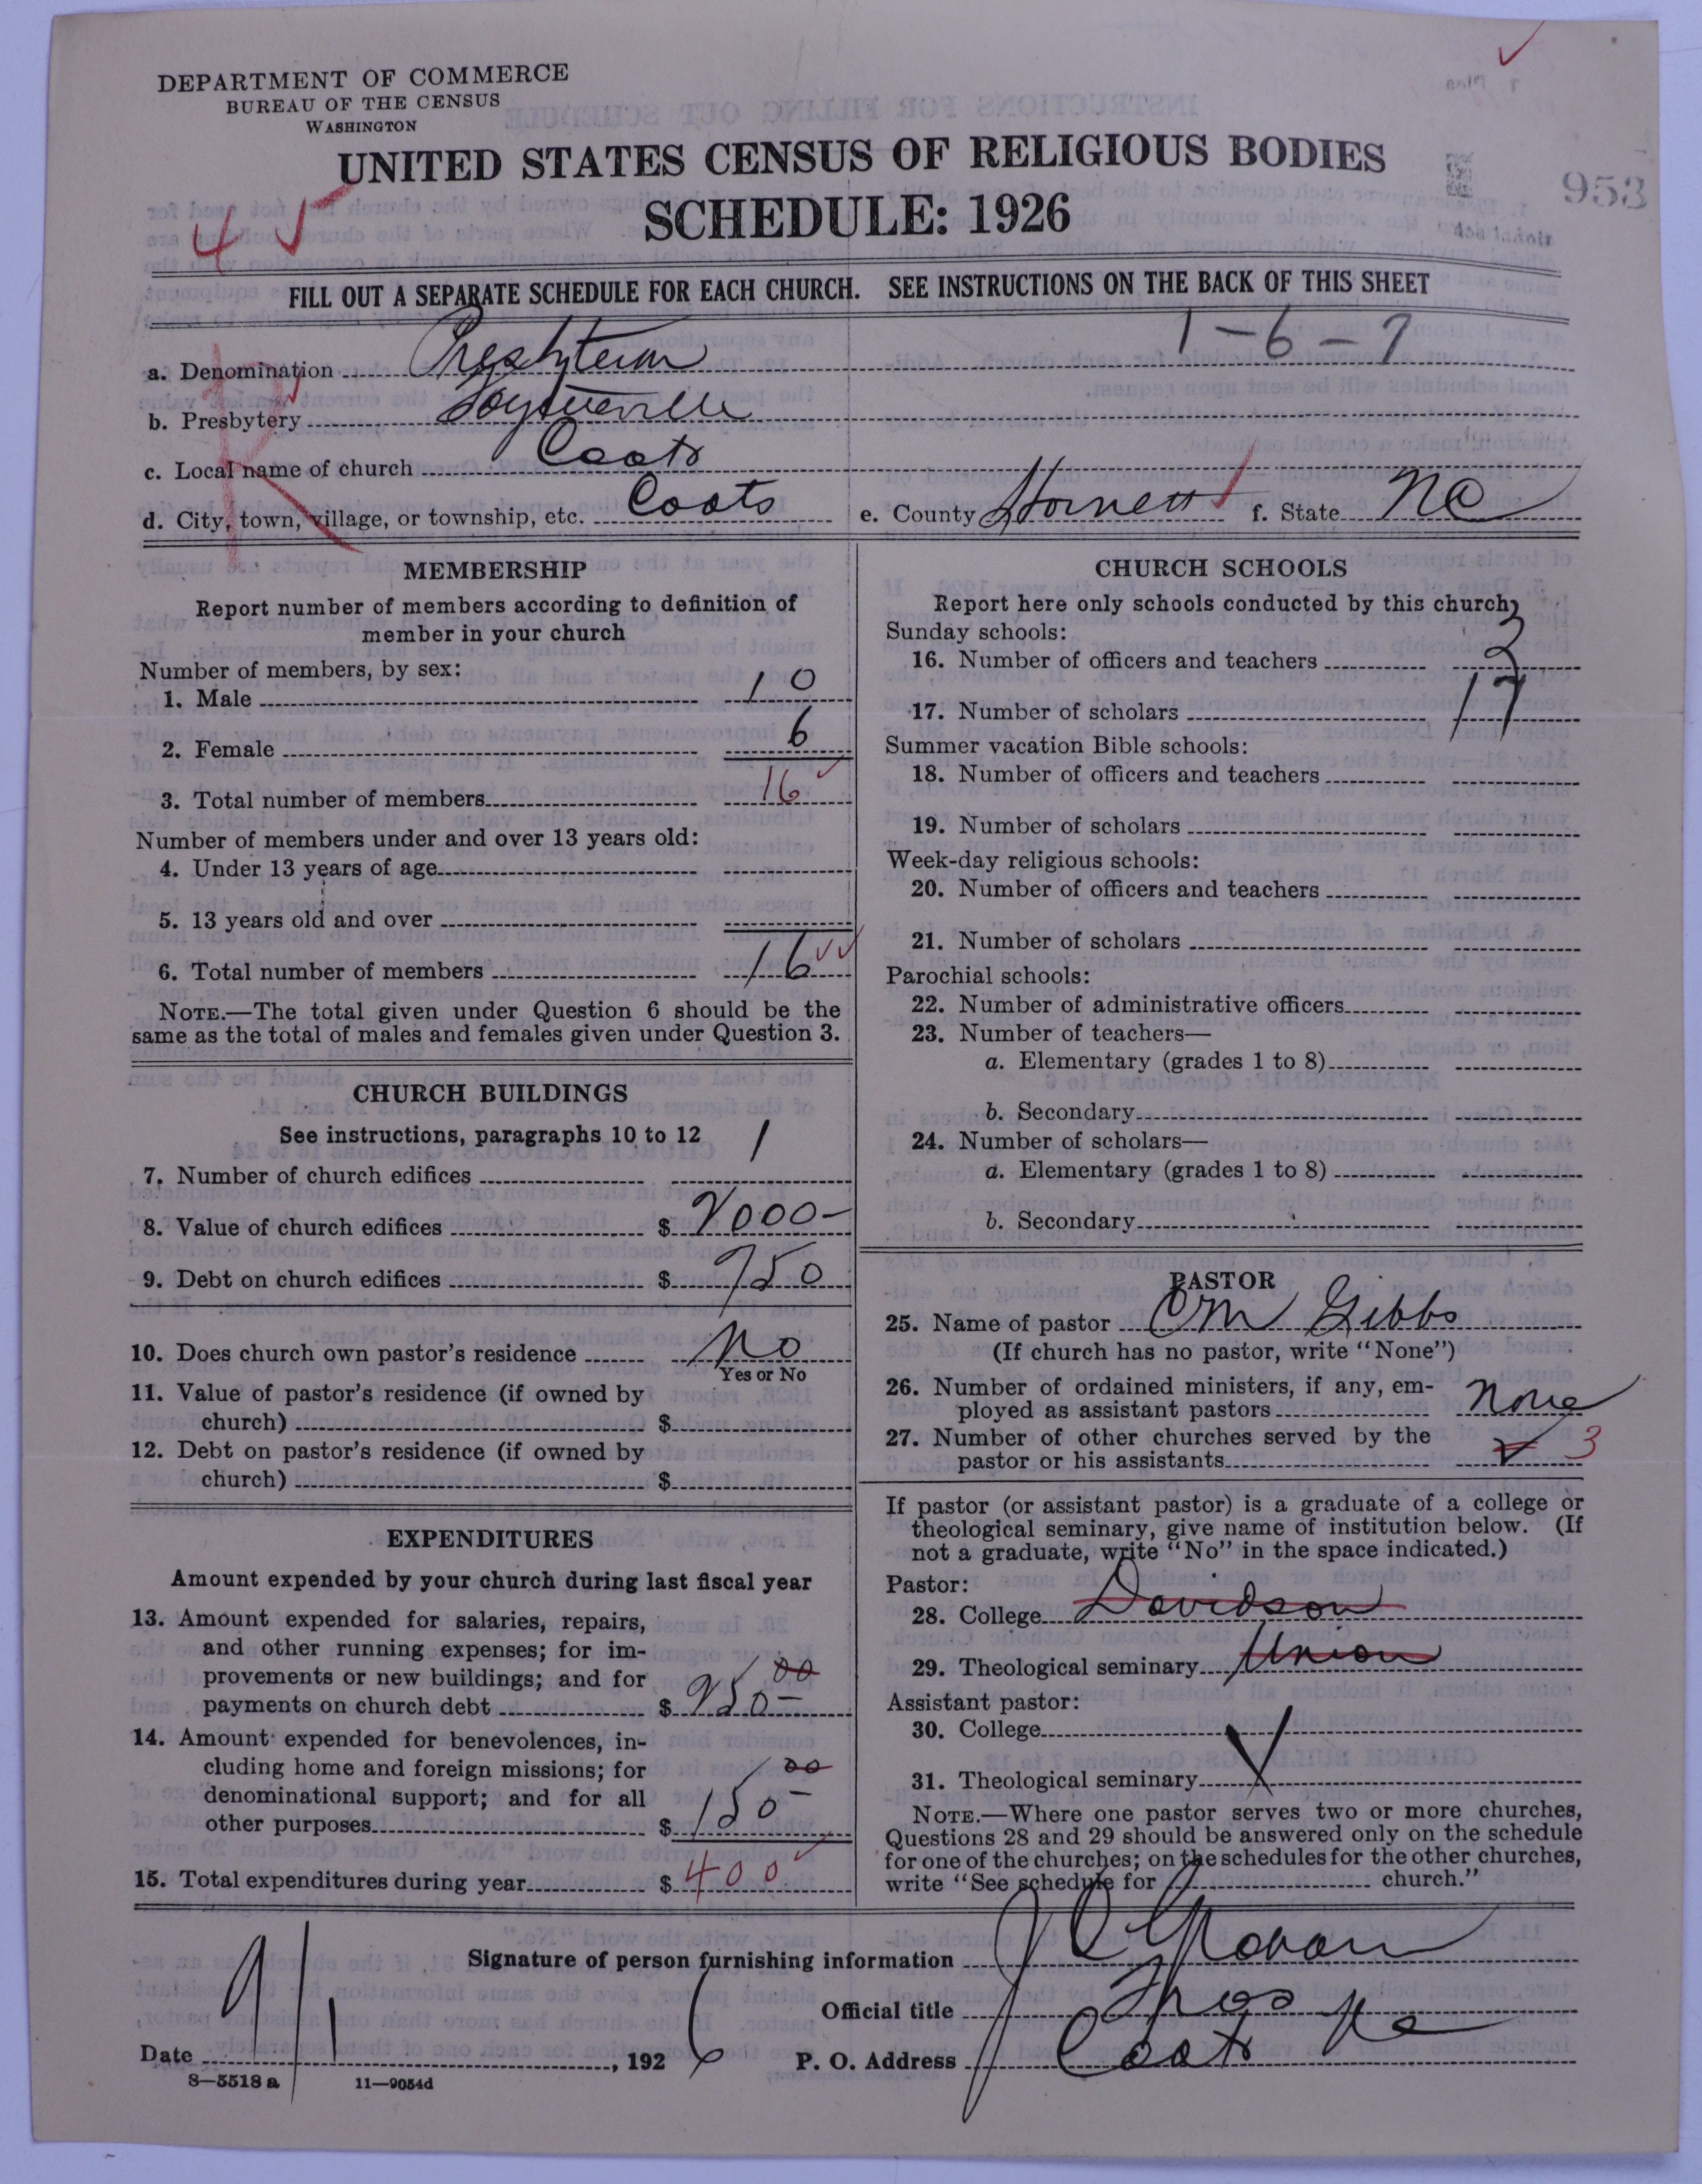 DEPARTMENT OF COMMERCE
BUREAU OF THE CENSUS
WASHINGTON
UNITED STATES CENSUS OF RELIGIOUS BODIES
SCHEDULE: 1926
953
4
FILL OUT A SEPARATE SCHEDULE FOR EACH CHURCH. SEE INSTRUCTIONS ON THE BACK OF THIS SHEET
1-6-7
a. Denomination
b. Presbytery
c. Local name of church Coats
d. City, town, village, or township, etc. Coats e. County Harnett f. State NC
MEMBERSHIP
Report number of members according to definition of
member in your church
Number of members, by sex:
1. Male 10
2. Female 6
3. Total number of members 16
Number of members under and over 13 years old:
4. Under 13 years of age
5. 13 years old and over
6. Total number of members 16
NOTE.—The total given under Question 6 should be the
same as the total of males and females given under Question 3.
CHURCH BUILDINGS
See instructions, paragraphs 10 to 12
7. Number of church edifices 1
8. Value of church edifices $ 2000-
9. Debt on church edifices $ 750
10. Does church own pastor's residence No
Yes or No
11. Value of pastor's residence (if owned by
church) $
12. Debt on pastor's residence (if owned by
church) $
EXPENDITURES
Amount expended by your church during last fiscal year
13. Amount expended for salaries, repairs,
and other running expenses; for im-
provements or new buildings; and for
payments on church debt $ 250- 00
14. Amount expended for benevolences, in-
cluding home and foreign missions; for
denominational support; and for all
other purposes $ 150- 00
15. Total expenditures during year $ 400
CHURCH SCHOOLS
Report here only schools conducted by this church
Sunday schools:
16. Number of officers and teachers 3
17. Number of scholars 17
Summer vacation Bible schools:
18. Number of officers and teachers
19. Number of scholars
Week-day religious schools:
20. Number of officers and teachers
21. Number of scholars
Parochial schools:
22. Number of administrative officers
23. Number of teachers—
a. Elementary (grades 1 to 8)
b. Secondary
24. Number of scholars—
a. Elementary (grades 1 to 8)
b. Secondary
PASTOR
25. Name of pastor Gibbs
(If church has no pastor, write "None")
26. Number of ordained ministers, if any, em-
ployed as assistant pastors None
27. Number of other churches served by the
pastor or his assistants 3
If pastor (or assistant pastor) is a graduate of a college or
theological seminary, give name of institution below. (If
not a graduate, write "No" in the space indicated.)
Pastor:
28. College Davidson
29. Theological seminary Union
Assistant pastor:
30. College
31. Theological seminary
NOTE.—Where one pastor serves two or more churches,
Questions 28 and 29 should be answered only on the schedule
for one of the churches; on the schedules for the other churches,
write "See schedule for church."
Signature of person furnishing information
Official title
Date 9/1, 1926 P. O. Address Coats NC
8—5518 a 11—9054d